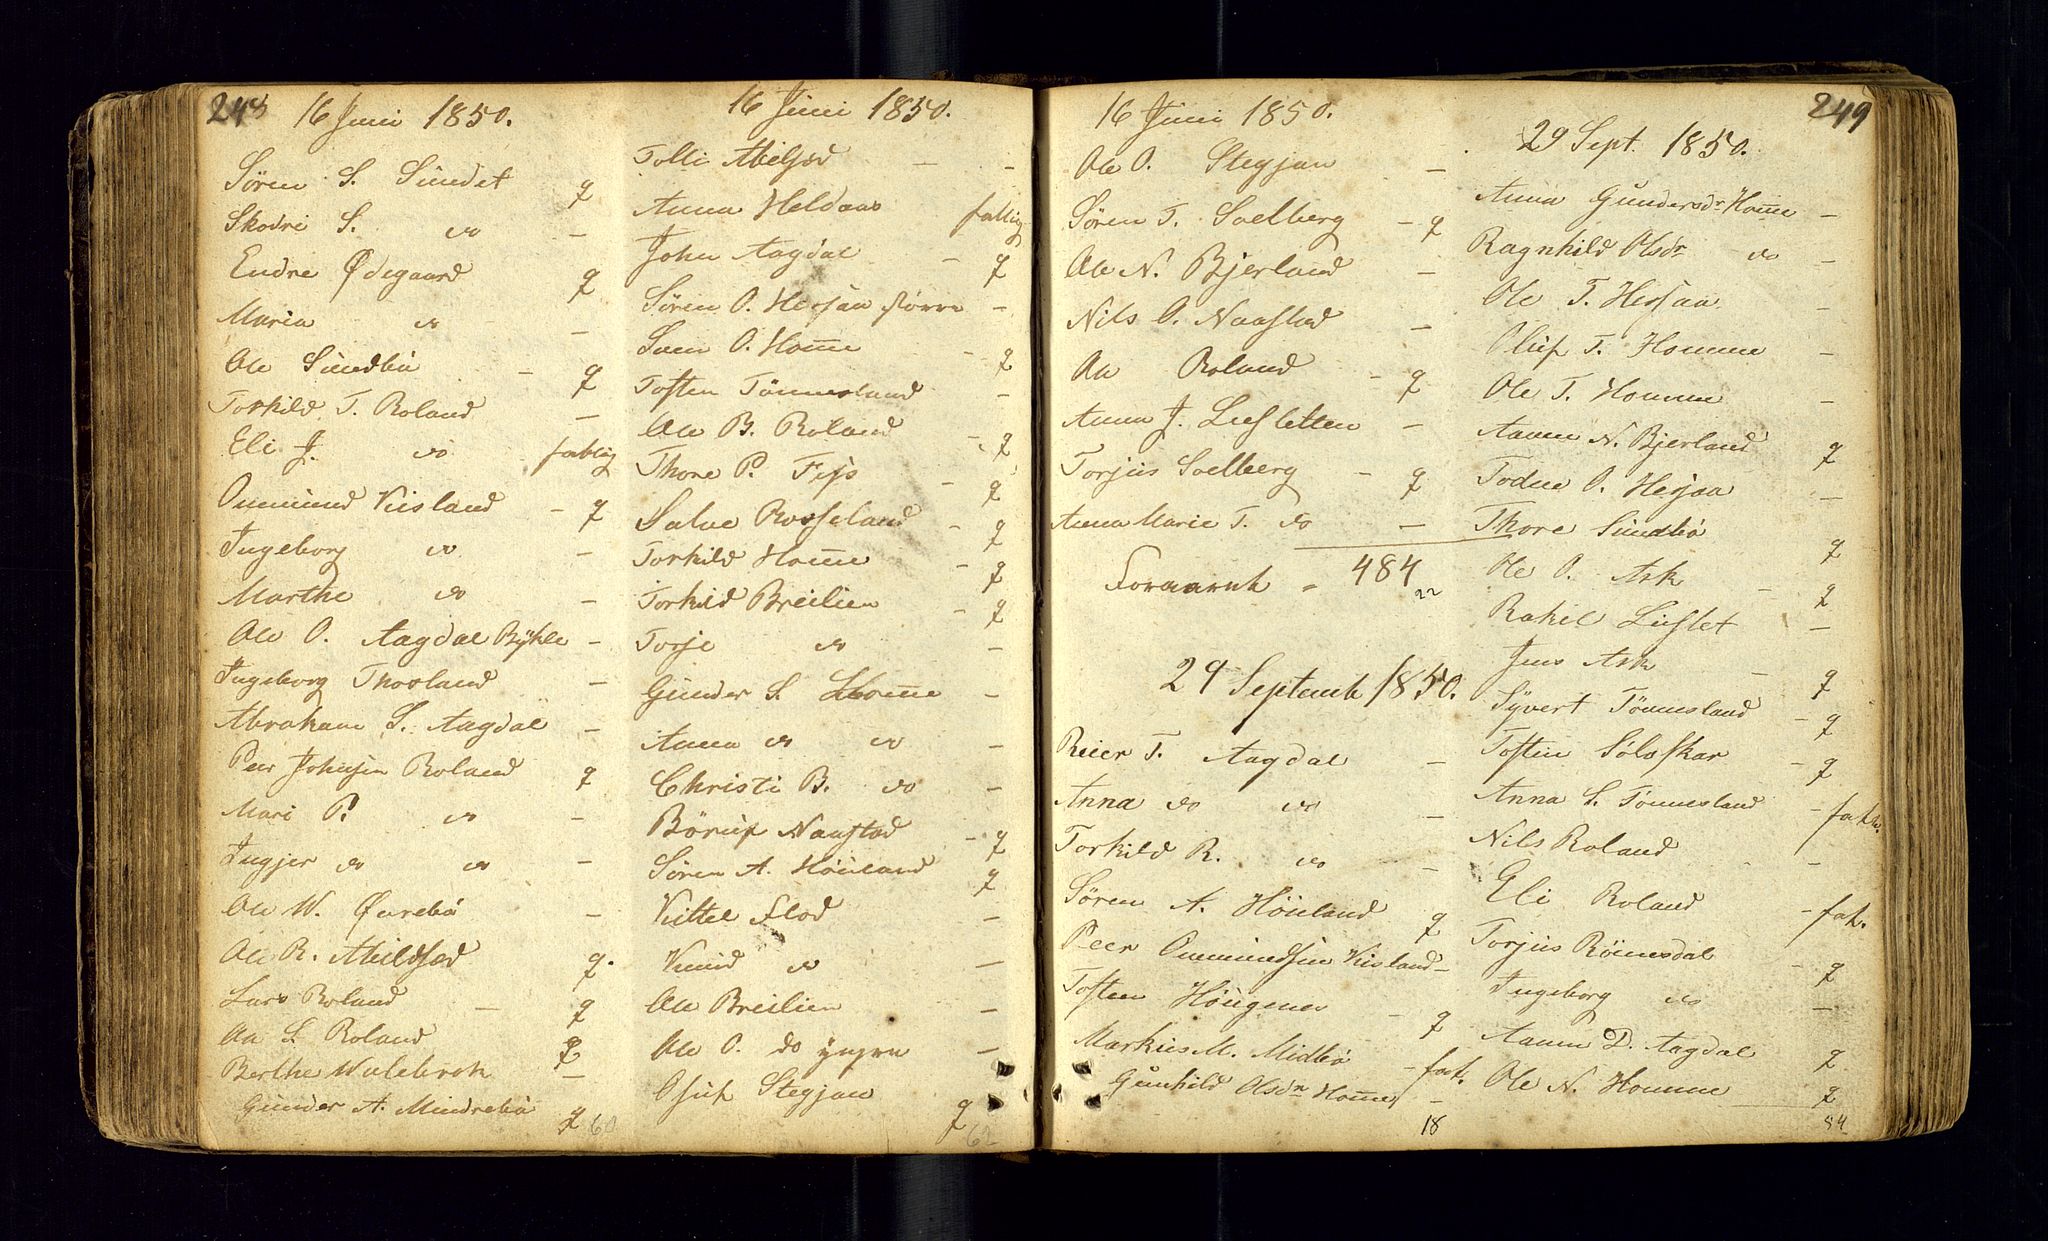 248
16 Juni 1850.
Sören S. Sundet g
Skodvi S. do –
Endre Ødegaard g
Maria do –
Ole Sundbö – g
Torkild T. Roland –
Eli J. do fattig
Onnmund Kisland – g
Ingeborg do –
Marthe do –
Ole O. Aagdal Bÿkle –
Ingeborg Thorland –
Abraham S. Aagdal –
Peer Johnsen Roland g
Mari P. do –
Ingjer do do –
Ole W. Øvrebö –
Ole R. Abildsæd g.
Lars Roland – g
Aa S. Roland g
Berthe Walebrok –
Gunder A. Mindrebö g
60
16 Juni 1850.
Tolli Abelsæd – –
Anna Heldaas fattig
John Aagdal – g
Sören O. Hessaa större –
Sven O. Home – g
Tosten Tönnesland –
Ole B. Roland – g
Thore P. Fejs – g
Salve Rosseland – g
Torkild Home – g
Torkild Breilien – g
Torje do –
Gunder S. Home –
Anna do do –
Christi B. do –
Böruf Naastad – g
Sören A. Höiland g
Kittel Flod –
Knud do –
Ole Breilien –
Ole O. do yngre –
Osuf Stegjan g
62
16 Juni 1850.
Ole O. Stegjan –
Sören T. Solberg – g
Ole N. Bjerland –
Nils O. Naastad –
Aa Roland – g
Anna J. Lusletten –
Torjus Solberg – g
Anna Marie T. do –
Foraaret = 484
22
29 Septemb 1850.
Reier T. Aagdal –
Anna do do –
Torkild R. do –
Sören A. Höiland g
Peer Onnmundsen Kisland –
Tosten Höugene – g
Markus M. Midbö – fat.
Gunhild Olsdr Home –
18
249
29 Sept. 1850.
Anna Gundersdr Home –
Ragnhild Olsdr do –
Ole T. Hessaa –
Oluf T. Homme –
Ole T. Homme –
Aanen N. Bjerland g
Todne O. Hessaa –
Thore Sundbö g
Ole O. Ask – g
Rakel Luslet –
Jens Ask – g
Syvert Tönnesland – g
Tosten Söloskar – g
Anna S. Tönnesland – fat.
Nils Roland –
Eli Roland – fat.
Torjus Römesdal – g
Ingeborg do –
Aanen D. Aagdal g
Ole N. Homme g
84